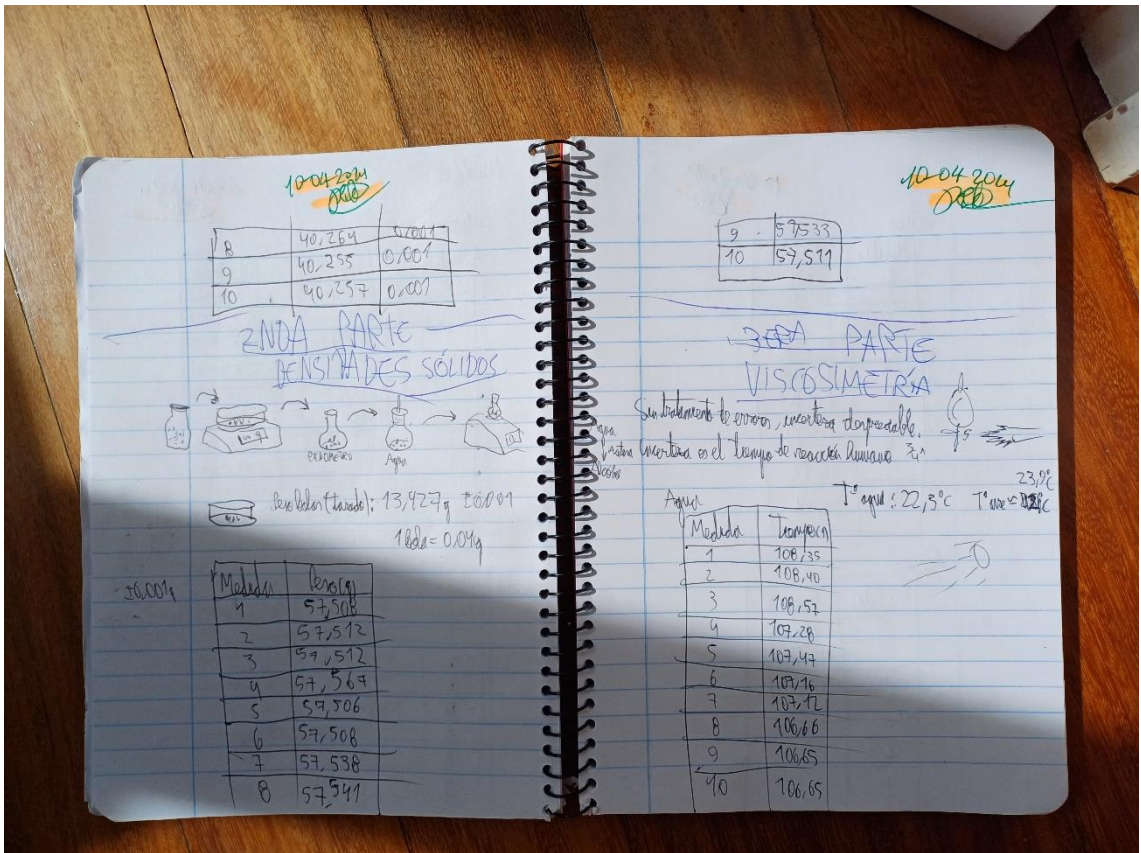 10-04-2024
8 40,264 0,001
9 40,255 0,001
10 40,257 0,001
2NDA PARTE
DENSIDADES SÓLIDOS
PICNÓMETRO Agua
Peso bolas (tarado): 13,427g ±0,001
1 bola = 0,04g
±0,001
Medida Peso(g)
1 57,508
2 57,512
3 57,512
4 57,567
5 57,506
6 57,508
7 57,538
8 57,541
10-04-2024
9 57,533
10 57,511
3ERA PARTE
VISCOSIMETRÍA
Sin tratamiento de errores, incerteza despreciable.
incerteza es el tiempo de reacción humano
Agua T° agua: 22,3°C 23,9°C
Medida Tiempo
1 108,35
2 108,40
3 108,57
4 107,28
5 107,47
6 107,16
7 107,12
8 106,66
9 106,65
10 106,65